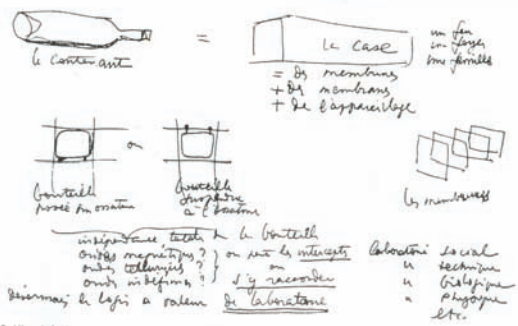 le contenant
=
la case
un feu
un foyer
une famille
= des membrures
+ des membranes
+ de l'appareillage
ou
bouteille
posée sur ossature
bouteille
suspendue
à l'ossature
les membrures
indépendance totale de la bouteille
ondes magnétiques ?
ondes telluriques ?
ondes infinies ?
on peut les intercepter
ou
s'y raccorder
Désormais le logis a valeur de laboratoire
Laboratoire social
" technique
" biologique
" physique
etc.